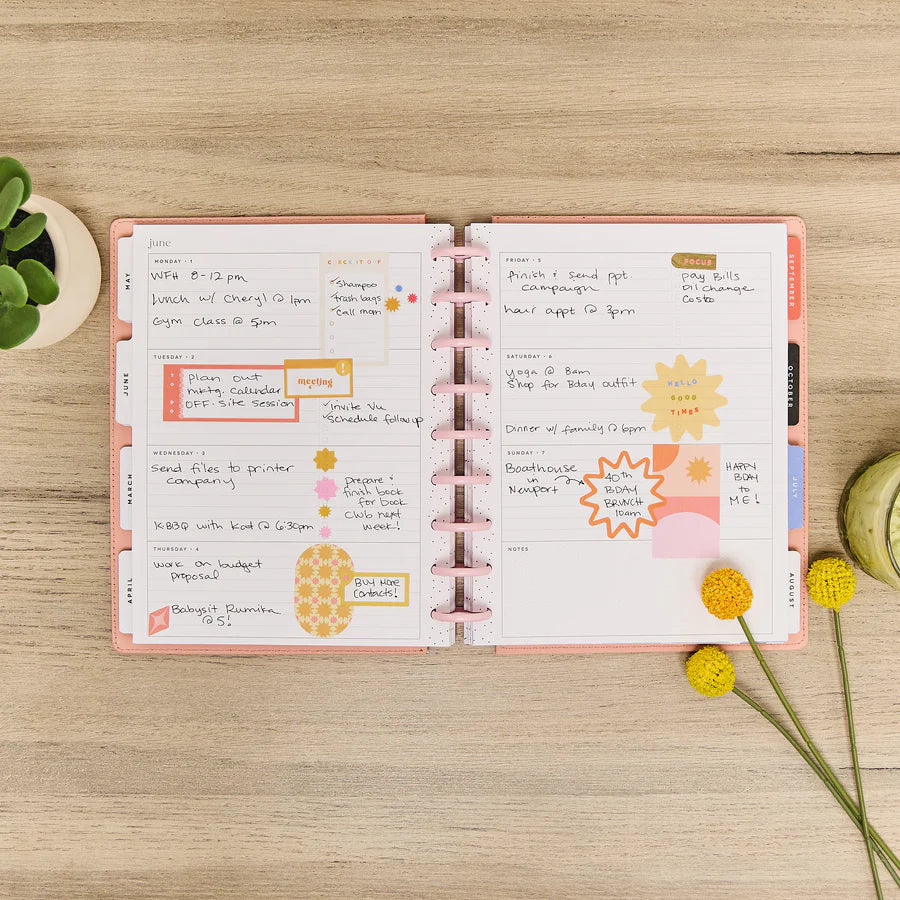 june
MONDAY • 1
WFH 8-12 pm
Lunch w/ Cheryl @ 1pm
Gym class @ 5pm
CHECK IT OFF
✓Shampoo
✓trash bags
✓call mom
TUESDAY • 2
Plan out
mktg. calendar
OFF-Site Session
meeting
!
✓invite Vu
✓schedule follow up
WEDNESDAY • 3
Send files to printer
company
K-BBQ with Kat @ 6:30pm
prepare &
finish book
for book
club next
week!
THURSDAY • 4
work on budget
proposal
Babysit Rumika
@ 5!
BUY MORE
Contacts!
FRIDAY • 5
finish & send ppt.
campaign
hair appt @ 3pm
FOCUS
pay Bills
oil change
Costco
SATURDAY • 6
yoga @ 8am
Shop for Bday outfit
Dinner w/ family @ 6pm
HELLO
GOOD
TIMES
SUNDAY • 7
Boathouse
in
Newport
40th
BDAY
BRUNCH
10am
HAPPY
BDAY
to
ME!
NOTES
MAY
JUNE
MARCH
APRIL
SEPTEMBER
OCTOBER
JULY
AUGUST